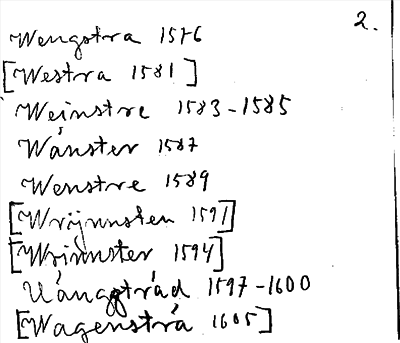 2.
Wengstra 1576
[Westra 1581]
Weinstre 1583-1585
Wånster 1587
Wenstre 1589
[Wrijnnsten 1591]
[Wrinnster 1594]
Uånggtråd 1597-1600
[Wagenstrå 1605]